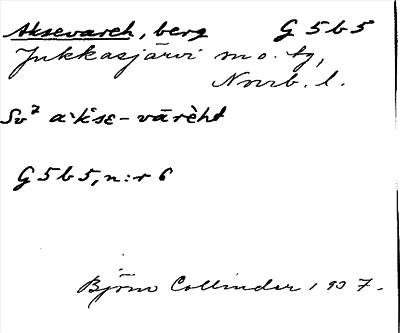 Aksevareh, berg G 5 b 5
Jukkasjärvi sn o. tg,
Norrb. l.
Sv⁷ a·k'sε-vārèht
G 5 b 5, n:r 6
Björn Collinder 1937.